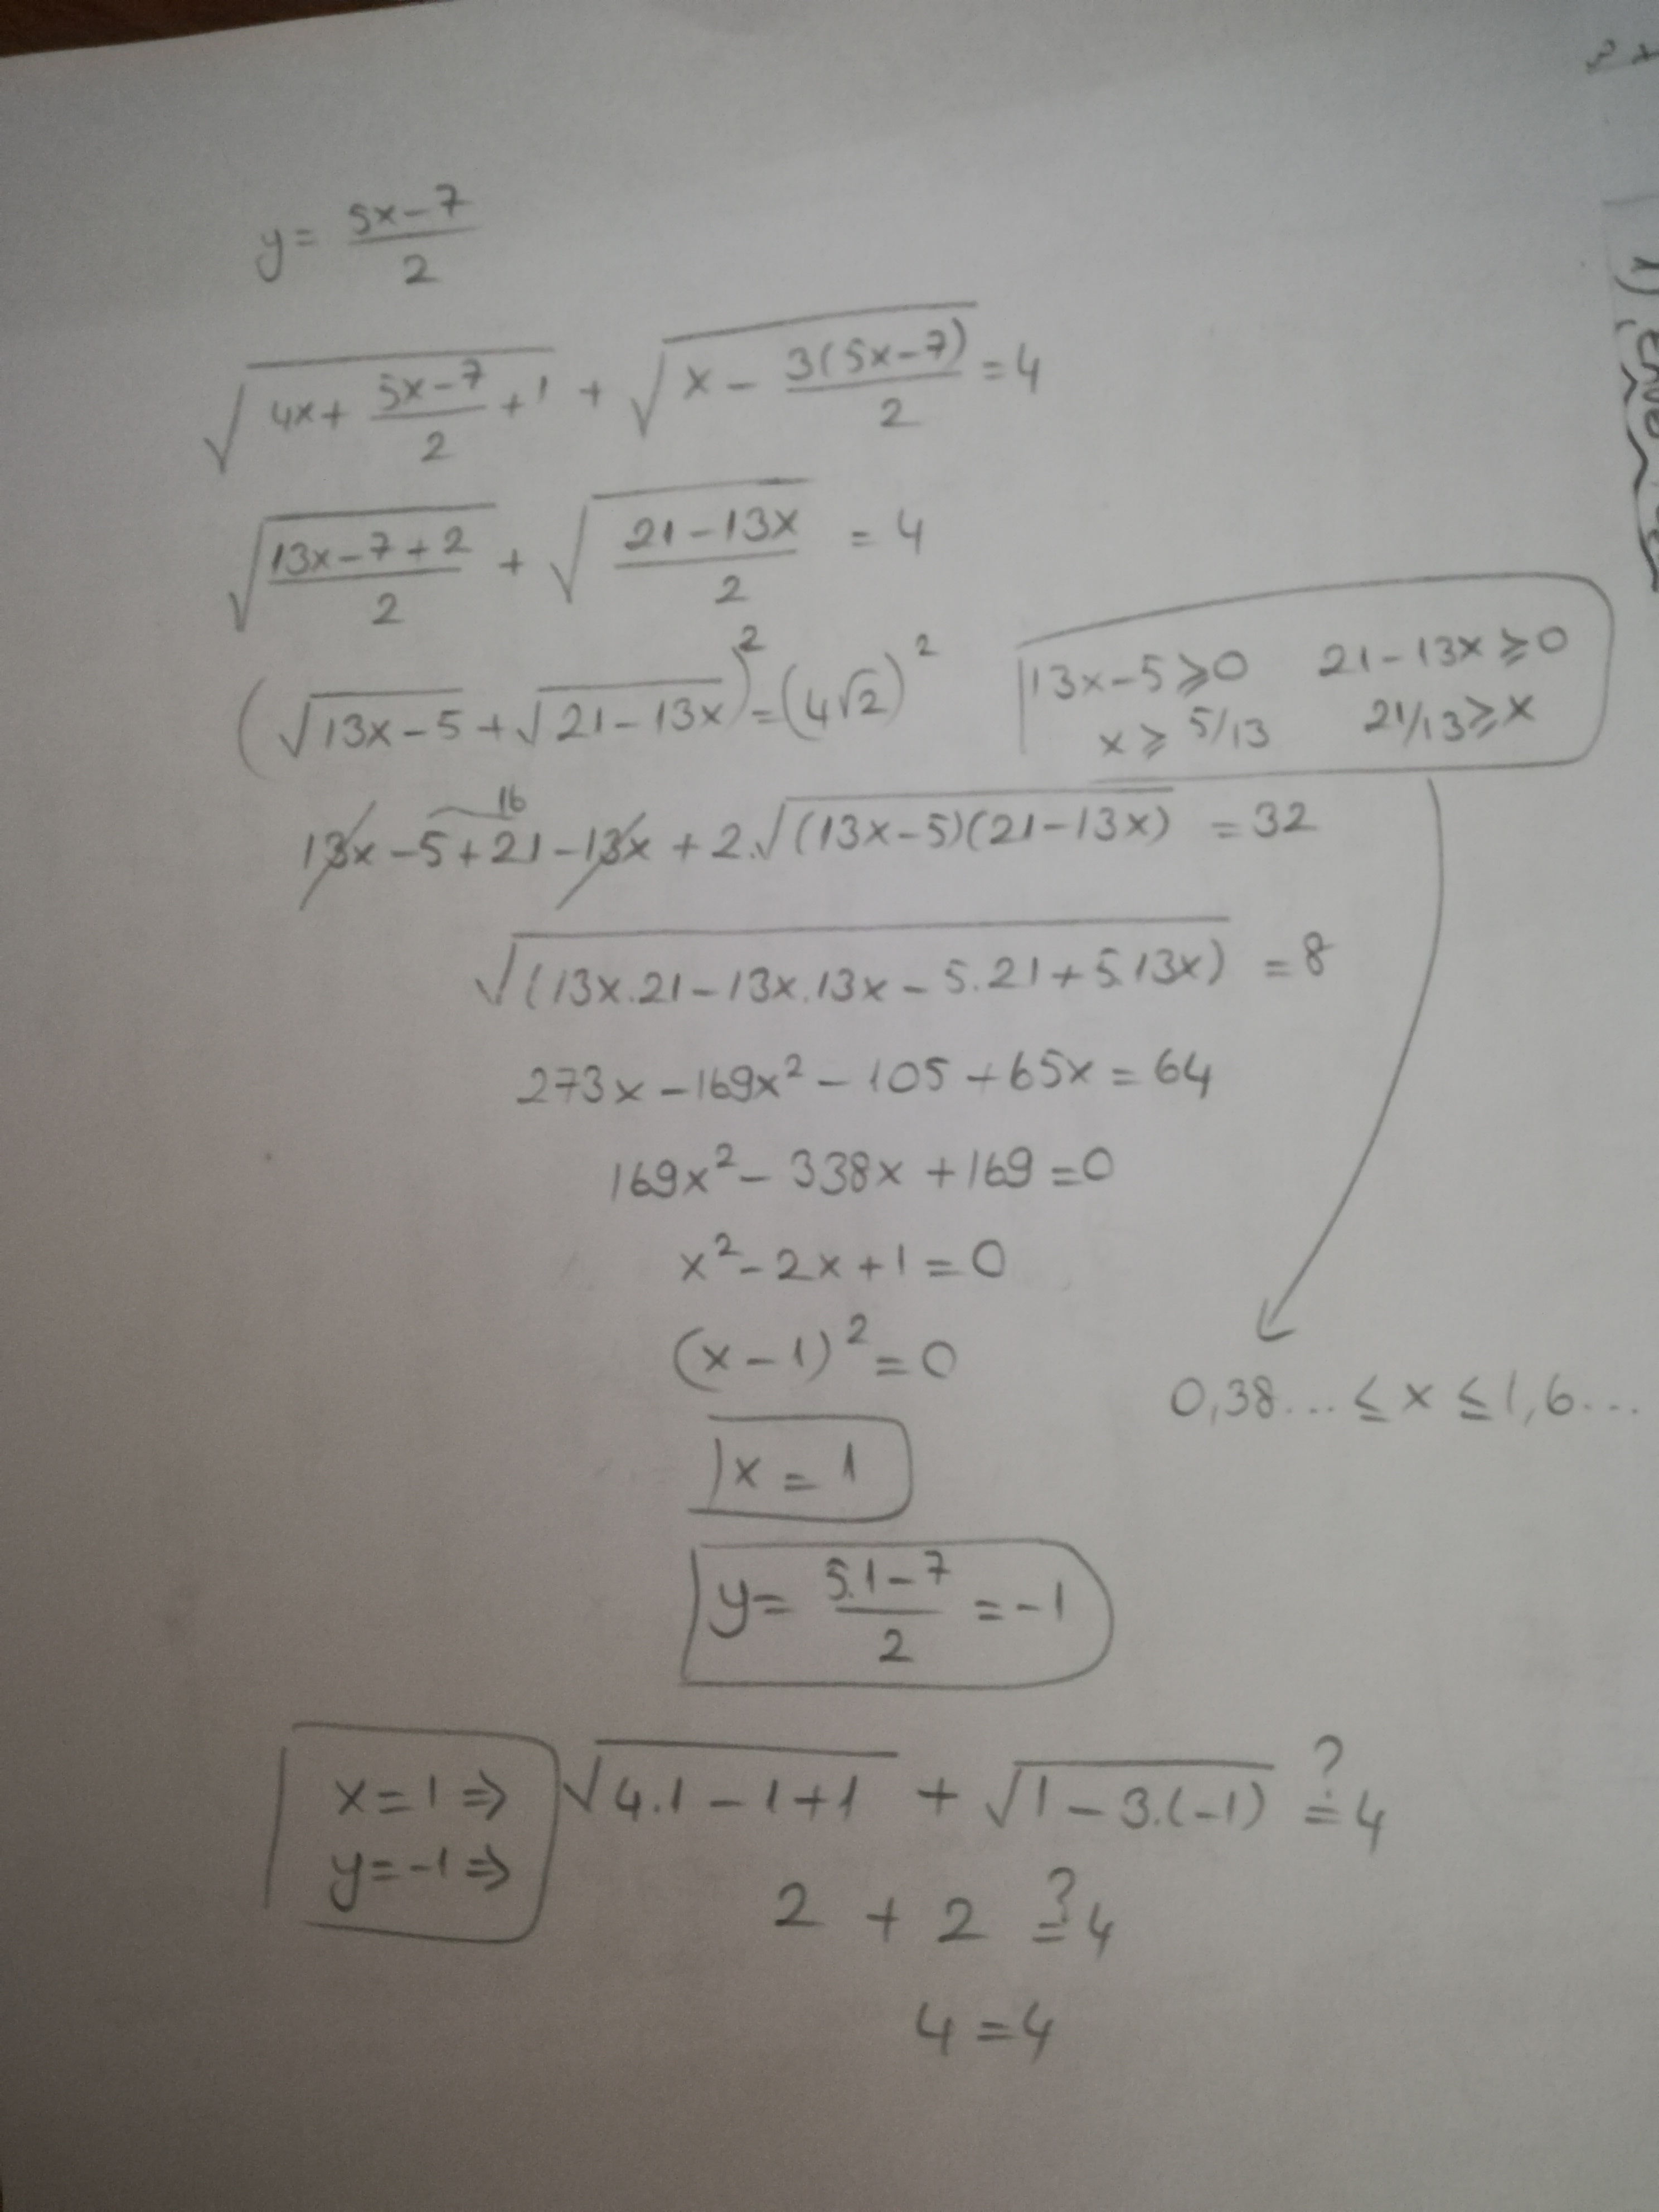 y = (5x-7)/2
√(4x + (5x-7)/2 + 1) + √(x - 3(5x-7)/2) = 4
√((13x-7+2)/2) + √((21-13x)/2) = 4
(√(13x-5) + √(21-13x))² = (4√2)²
13x-5⩾0 21-13x⩾0
x⩾5/13 21/13⩾x
16
13x-5+21-13x + 2.√((13x-5)(21-13x)) = 32
√(13x.21-13x.13x-5.21+5.13x) = 8
273x-169x²-105+65x=64
169x²-338x+169=0
x²-2x+1=0
(x-1)²=0
0,38...≤x≤1,6...
x=1
y = (5.1-7)/2 = -1
x=1⇒ √(4.1-1+1) + √(1-3.(-1)) ≟ 4
y=-1⇒
2+2 ≟ 4
4=4